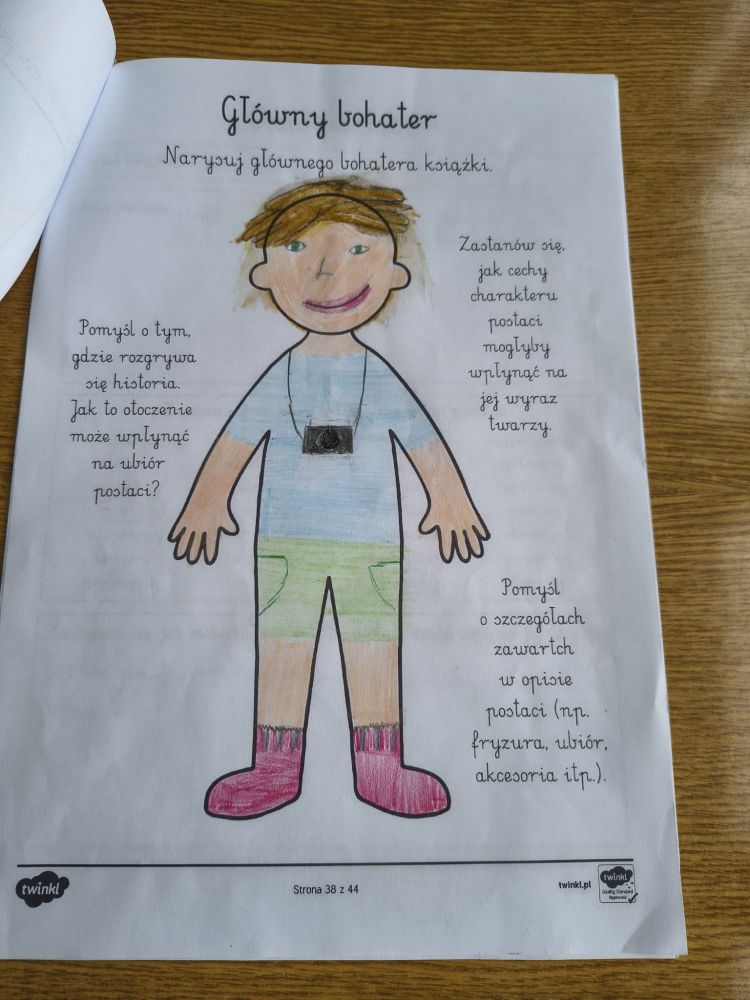 Główny bohater
Narysuj głównego bohatera książki.
Zastanów się,
jak cechy
charakteru
postaci
mogłyby
wpłynąć na
jej wyraz
twarzy.
Pomyśl o tym,
gdzie rozgrywa
się historia.
Jak to otoczenie
może wpłynąć
na ubiór
postaci?
Pomyśl
o szczegółach
zawartch
w opisie
postaci (np.
fryzura, ubiór,
akcesoria itp.).
twinkl
Strona 38 z 44
twinkl.pl
twinkl
Quality Standard
Approved